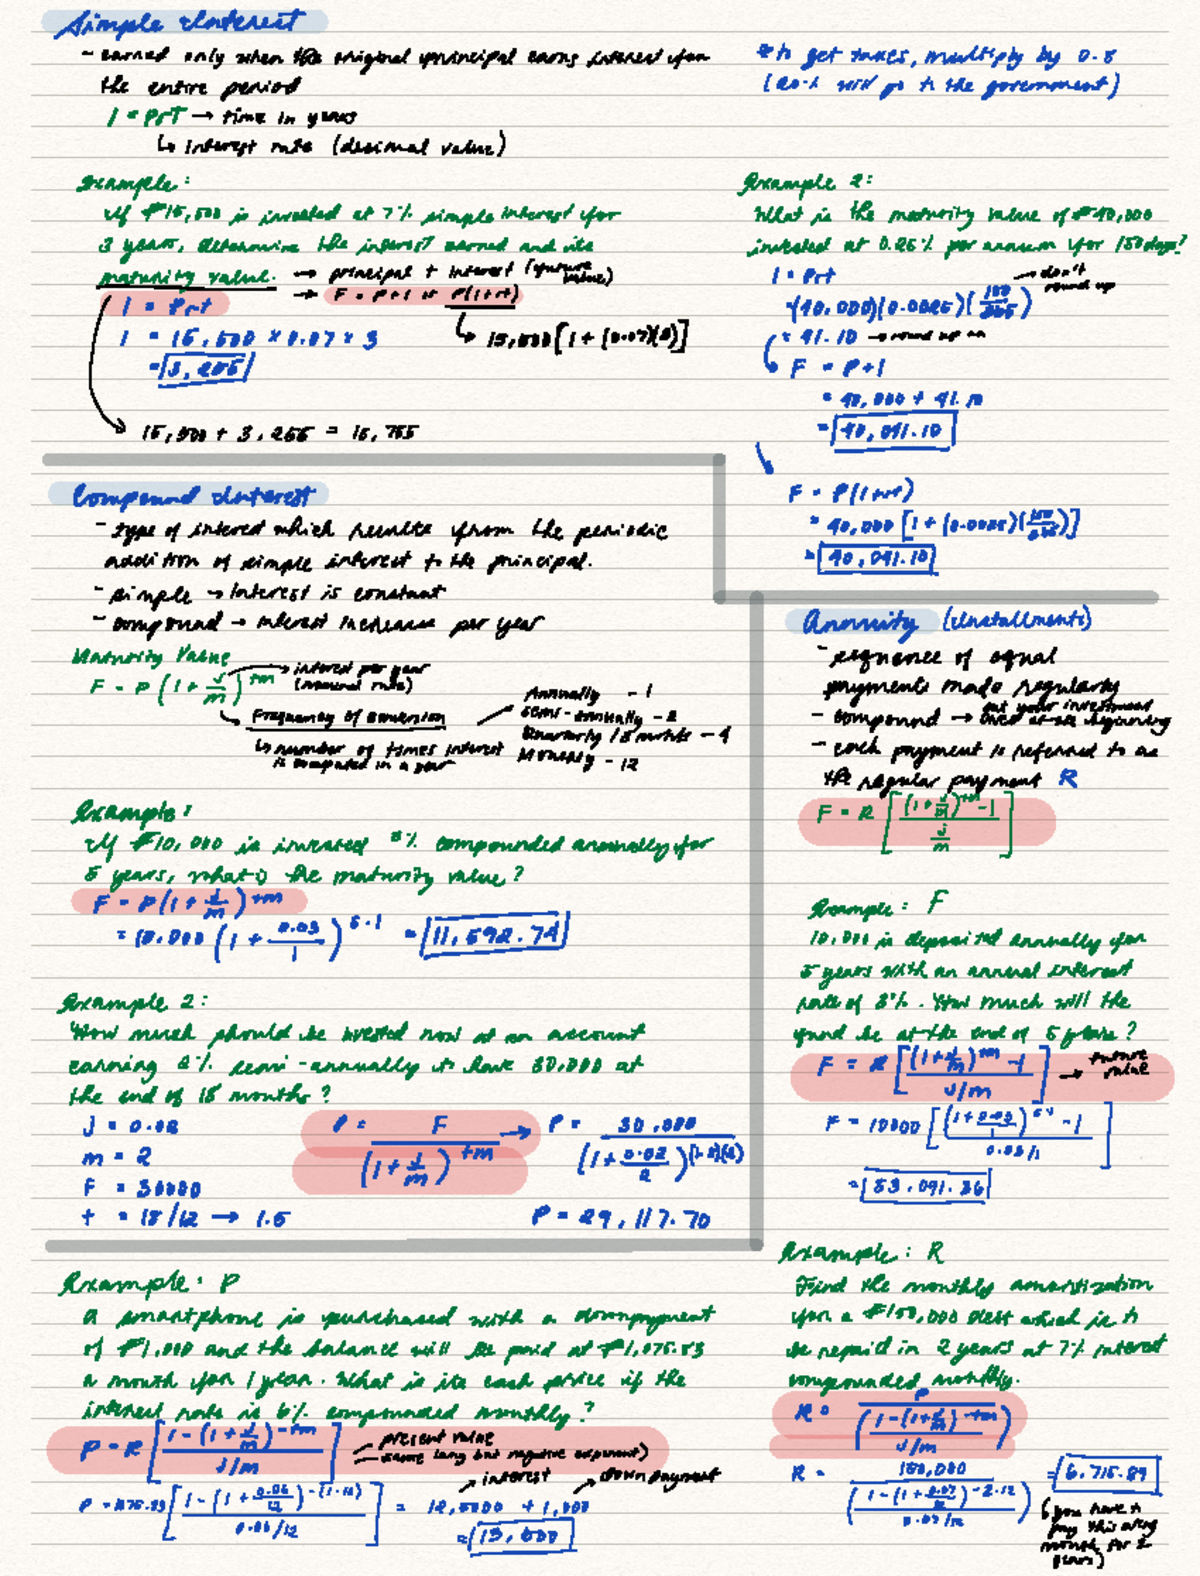 Simple Interest
- earned only when the original principal earns interest for
the entire period
I = PrT → time in years
↳ interest rate (decimal value)
Example:
If ₱15,500 is invested at 7% simple interest for
3 years, determine the interest earned and its
maturity value. → principal + interest (future value)
→ F = P+I or P(1+rt)
I = Prt
I = 15,500 × 0.07 × 3
= 3,255
↳ 15,500[1 + (0.07)(3)]
15,500 + 3,255 = 18,755
* to get taxes, multiply by 0.8
(20% will go to the government)
Example 2:
What is the maturity value of ₱40,000
invested at 0.25% per annum for 150 days?
I = Prt
→ don't round up
= (40,000)(0.0025)(150/365)
= 41.10 → round up
F = P+I
= 40,000 + 41.10
= 40,041.10
F = P(1+rt)
= 40,000[1 + (0.0025)(150/365)]
= 40,041.10
Compound Interest
- type of interest which results from the periodic
addition of simple interest to the principal.
- simple → interest is constant
- compound → interest increase per year
Maturity Value
F = P(1 + j/m)^tm
→ interest per year (nominal rate)
↳ Frequency of conversion
↳ number of times interest
is computed in a year
Annually - 1
semi-annually - 2
Quarterly / 3 months - 4
Monthly - 12
Example:
If ₱10,000 is invested 3% compounded annually for
5 years, what is the maturity value?
F = P(1 + j/m)^tm
= 10,000(1 + 0.03/1)^5·1 = 11,592.74
Example 2:
How much should be invested now at an account
earning 2% semi-annually to have 30,000 at
the end of 18 months?
j = 0.02
m = 2
F = 30000
t = 18/12 → 1.5
P = F/(1 + j/m)^tm → P = 30,000/(1 + 0.02/2)^(1.5)(2)
P = 29,117.70
Annuity (Installments)
- sequence of equal
payments made regularly
- compound → put your investment at the beginning
- each payment is referred to as
the regular payment R
F = R[((1 + j/m)^tm - 1)/(j/m)]
Example: F
10,000 is deposited annually for
5 years with an annual interest
rate of 3%. How much will the
fund be at the end of 5 years?
F = R[((1 + j/m)^tm - 1)/(j/m)] → future value
F = 10000[((1 + 0.03/1)^5·1 - 1)/(0.03/1)]
= 53,091.36
Example: P
A smartphone is purchased with a downpayment
of ₱1,000 and the balance will be paid at ₱1,075.83
a month for 1 year. What is its cash price if the
interest rate is 6% compounded monthly?
P = R[(1 - (1 + j/m)^-tm)/(j/m)]
present value
same lang but negative exponent)
→ interest → down payment
P = 1075.83[(1 - (1 + 0.06/12)^-(1·12))/(0.06/12)] = 12,5000 + 1,000
= 13,500
Example: R
Find the monthly amortization
for a ₱150,000 debt which is to
be repaid in 2 years at 7% interest
compounded monthly.
R = P/((1 - (1 + j/m)^-tm)/(j/m))
R = 150,000/((1 - (1 + 0.07/12)^-2·12)/(0.07/12)) = 6,715.89
(you have to
pay this every
month for 2
years)